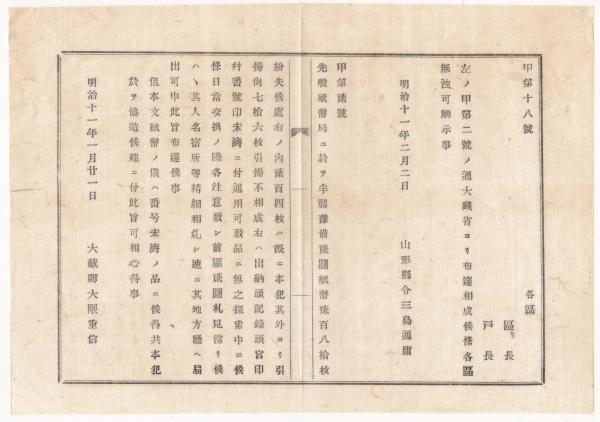 甲第十八號
各區
區長
戸長
左ノ甲第二號ノ通大藏省ヨリ布達相成候條各區
無洩可觸示事
明治十一年二月二日
山形縣令三島通庸
甲第貳號
先般紙幣局ニ於テ半製豫備貳圓紙幣貳百八拾枚
紛失候處右ノ內貳百四枚ハ既ニ本犯其外ヨリ引
揚尚七拾六枚引揚不相成右ハ出納頭記錄頭官印
幷番號印未濟ニ付通用可致品ニ無之探索中ニ候
條日常交換ノ際各注意致シ前顯貳圓札見當リ候
ハヽ其人名宿所等精細相糺シ速ニ其地方廳ヘ屆
出可申此旨布達候事
但本文紙幣ノ儀ハ番号未濟ノ品ニ候得共本犯
於テ僞造候趣ニ付此旨可相心得事
明治十一年一月廿一日
大藏卿大隈重信